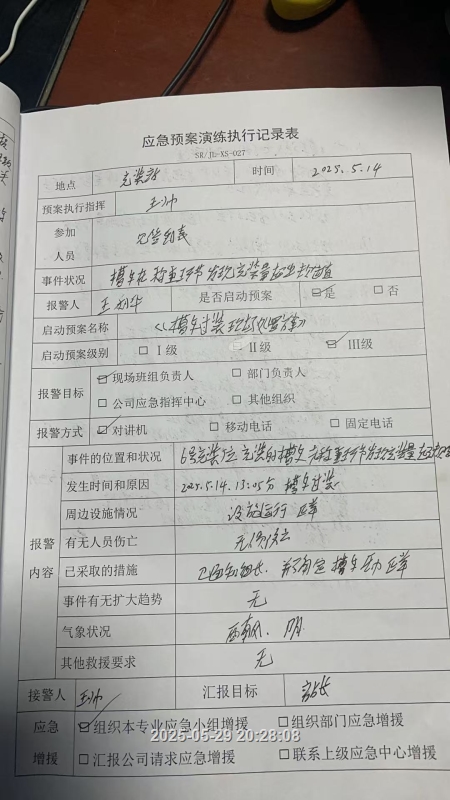 应急预案演练执行记录表
SR/JL-XS-027
地点 充装站 时间 2025.5.14
预案执行指挥 王帅
参加人员 见签到表
事件状况 槽车在称重环节发现充装量超出
报警人 王 是否启动预案 ☑是 □否
启动预案名称 《槽车过装现场处置方案》
启动预案级别 □Ⅰ级 □Ⅱ级 ☑Ⅲ级
报警目标 ☑现场班组负责人 □部门负责人
□公司应急指挥中心 □其他组织
报警方式 ☑对讲机 □移动电话 □固定电话
报警内容
事件的位置和状况 6号充装位充装的槽车在称重环节发现充装量超
发生时间和原因 2025.5.14.13:05分 槽车过装
周边设施情况 设施运行正常
有无人员伤亡 无人员伤亡
已采取的措施 已通知组长、并确定槽车压力正常
事件有无扩大趋势 无
气象状况 西南风、阴
其他救援要求 无
接警人 王帅 汇报目标 站长
应急增援 ☑组织本专业应急小组增援 □组织部门应急增援
□汇报公司请求应急增援 □联系上级应急中心增援
2025-05-29 20:28:08